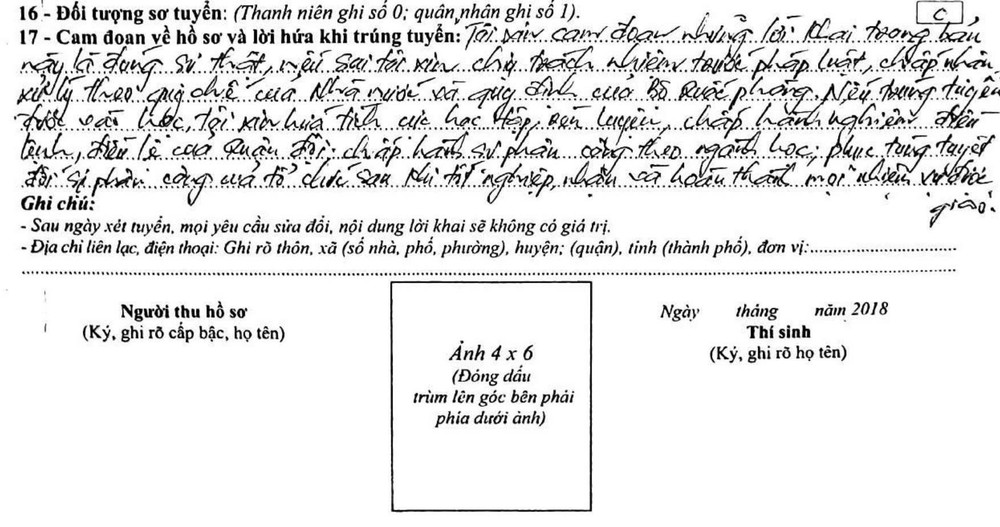 16 - Đối tượng sơ tuyển: (Thanh niên ghi số 0; quân nhân ghi số 1).
17 - Cam đoan về hồ sơ và lời hứa khi trúng tuyển: Tôi xin cam đoan những lời khai trong bản
này là đúng sự thật, nếu sai tôi xin chịu trách nhiệm trước pháp luật, chấp nhận
xử lý theo quy chế của Nhà nước và quy định của Bộ Quốc phòng. Nếu trúng tuyển
được vào học, tôi xin hứa tích cực học tập, rèn luyện, chấp hành nghiêm điều
lệnh, điều lệ của Quân đội; chấp hành sự phân công theo ngành học; phục tùng tuyệt
đối sự phân công của tổ chức sau khi tốt nghiệp, nhận và hoàn thành mọi nhiệm vụ được
giao.
Ghi chú:
- Sau ngày xét tuyển, mọi yêu cầu sửa đổi, nội dung lời khai sẽ không có giá trị.
- Địa chỉ liên lạc, điện thoại: Ghi rõ thôn, xã (số nhà, phố, phường), huyện; (quận), tỉnh (thành phố), đơn vị:
Người thu hồ sơ
(Ký, ghi rõ cấp bậc, họ tên)
Ảnh 4 x 6
(Đóng dấu
trùm lên góc bên phải
phía dưới ảnh)
Ngày tháng năm 2018
Thí sinh
(Ký, ghi rõ họ tên)